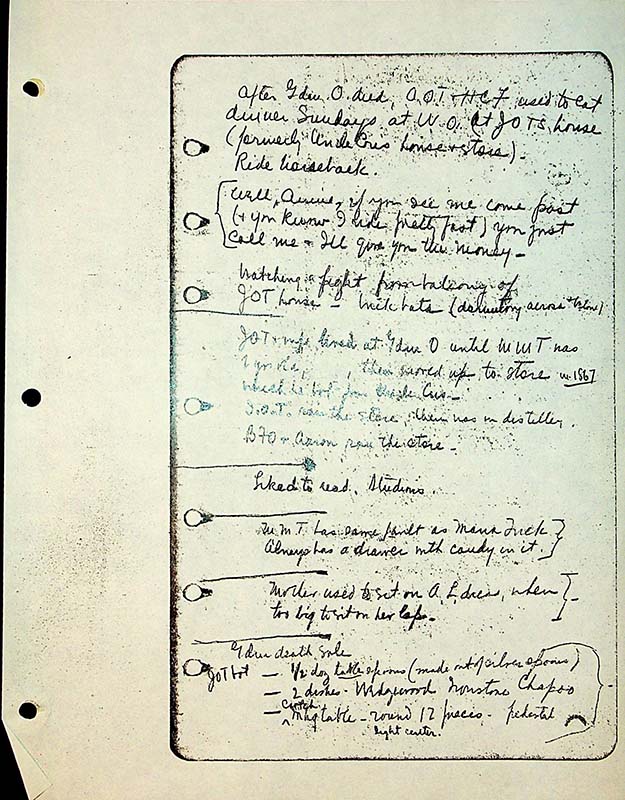 After Gdm O. died, A.O.T. + HCF used to eat
dinner Sundays at W.O. (at JOT'S house
(formerly Uncle Cris house + store).
Ride horseback.
Well, Annie, if you see me come past
(+ you know I ride pretty fast) you just
call me + I'll give you the money -
Watching a fight from balcony of
JOT house - brick bats (distillery across + store)
JOT + wife lived at Gdm O until WMT was
1 yr old, then moved up to store in 1867
which he bot from Uncle Cris -
J.O.T. ran the store, then was in distillery.
+ Aaron ran the store -
Liked to read. Studious.
WMT has same fault as Mama
Always has a drawer with candy in it.
Mother used to sit on A. L. dress, when
too big to sit on her lap -
Gdm death sale
JOT bot
- 1/2 doz table spoons (made out of silver spoons)
- 2 dishes - Wedgewood Ironstone
- table - round 12 pieces - pedestal
center.